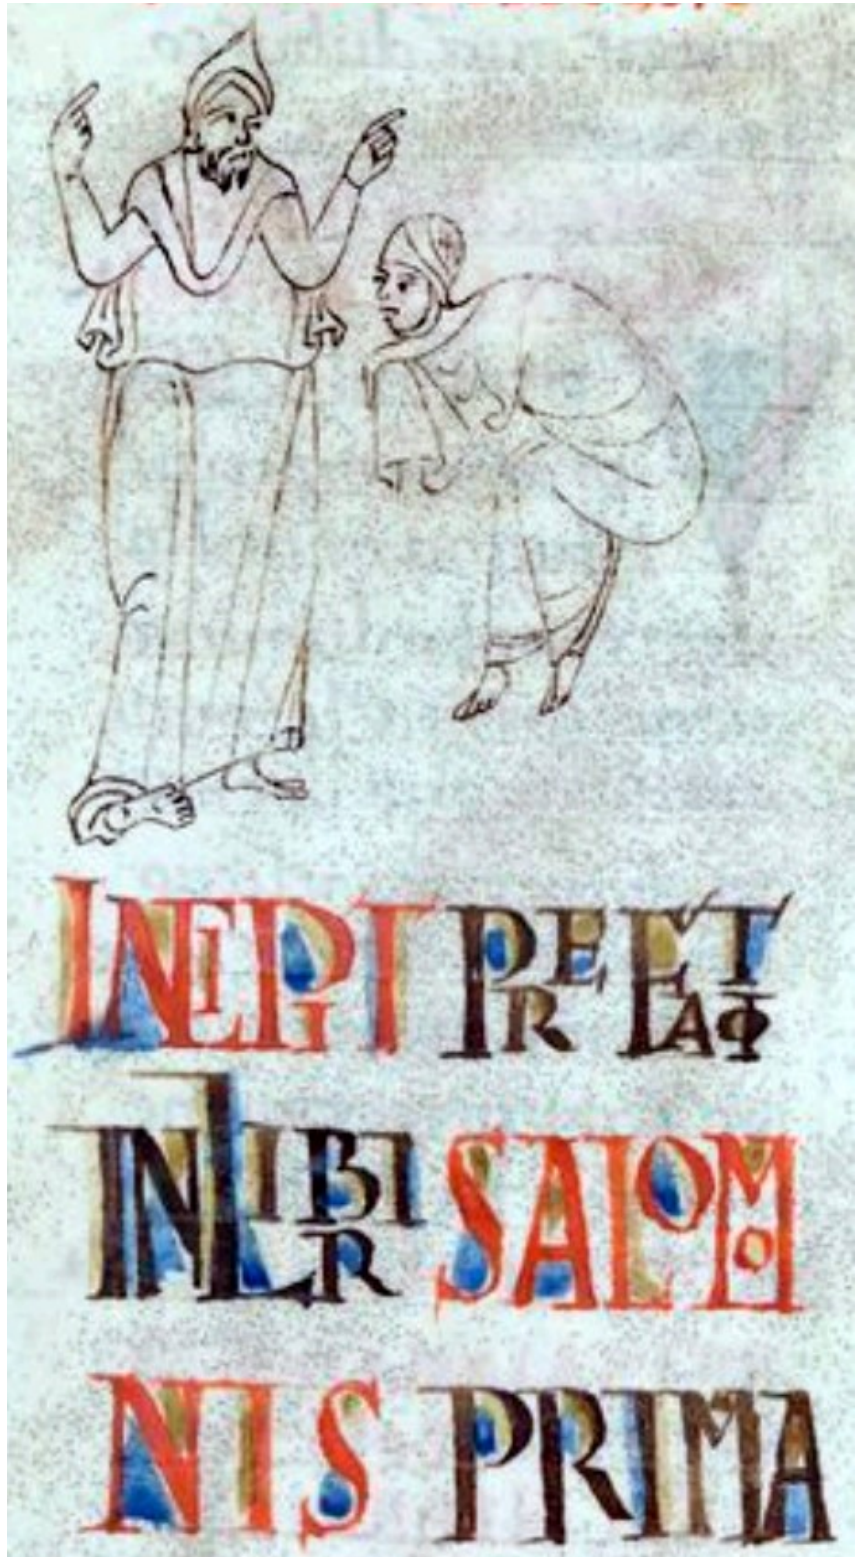 INCIPIT PREFATIO
IN LIBRI SALOMO
NIS PRIMA